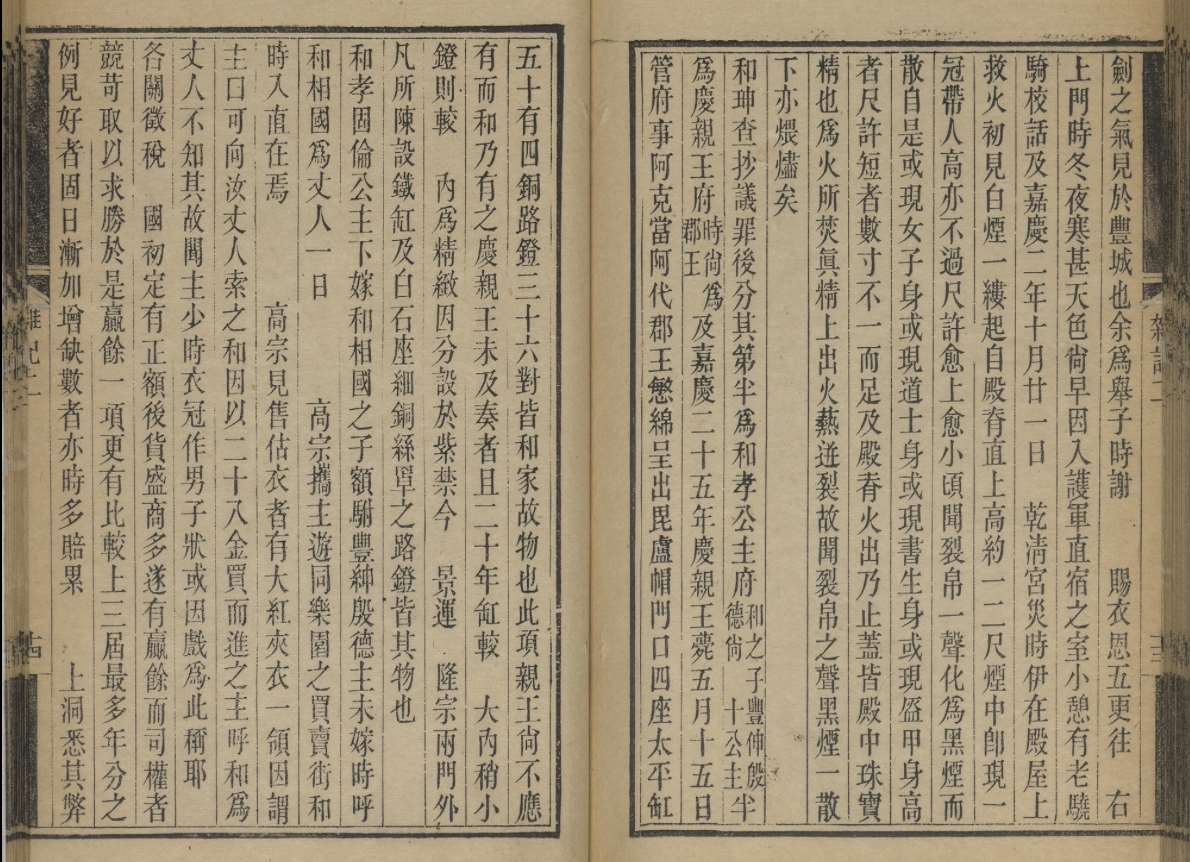 劍之氣見於豐城也余爲舉子時謝　賜衣恩五更往　右
上門時冬夜寒甚天色尙早因入護軍直宿之室小憩有老驍
騎校話及嘉慶二年十月廿一日　乾淸宮災時伊在殿屋上
救火初見白煙一縷起自殿脊直上高約一二尺煙中卽現一
冠帶人高亦不過尺許愈上愈小頃聞裂帛一聲化爲黑煙而
散自是或現女子身或現道士身或現書生身或現盔甲身高
者尺許短者數寸不一而足及殿脊火出乃止蓋皆殿中珠寶
精也爲火所焚眞精上出火爇迸裂故聞裂帛之聲黑煙一散
下亦煨燼矣
和珅查抄議罪後分其第半爲和孝公主府和之子豐伸殷德尙十公主半
爲慶親王府時尙爲郡王及嘉慶二十五年慶親王薨五月十五日
管府事阿克當阿代郡王慜綿呈出毘盧帽門口四座太平缸
五十有四銅路鐙三十六對皆和家故物也此項親王尙不應
有而和乃有之慶親王未及奏者且二十年缸較　大內稍小
鐙則較　內爲精緻因分設於紫禁今　景運　隆宗兩門外
凡所陳設鐵缸及白石座細銅絲罩之路鐙皆其物也
和孝固倫公主下嫁和相國之子額駙豐紳殷德主未嫁時呼
和相國爲丈人一日　高宗攜主遊同樂園之買賣街和
時入直在焉　高宗見售估衣者有大紅夾衣一領因謂
主曰可向汝丈人索之和因以二十八金買而進之主呼和爲
丈人不知其故聞主少時衣冠作男子狀或因戲爲此稱耶
各關徵稅　國初定有正額後貨盛商多遂有贏餘而司權者
競苛取以求勝於是贏餘一項更有比較上三屆最多年分之
例見好者固日漸加增缺數者亦時多賠累　上洞悉其弊
雜記二
十四